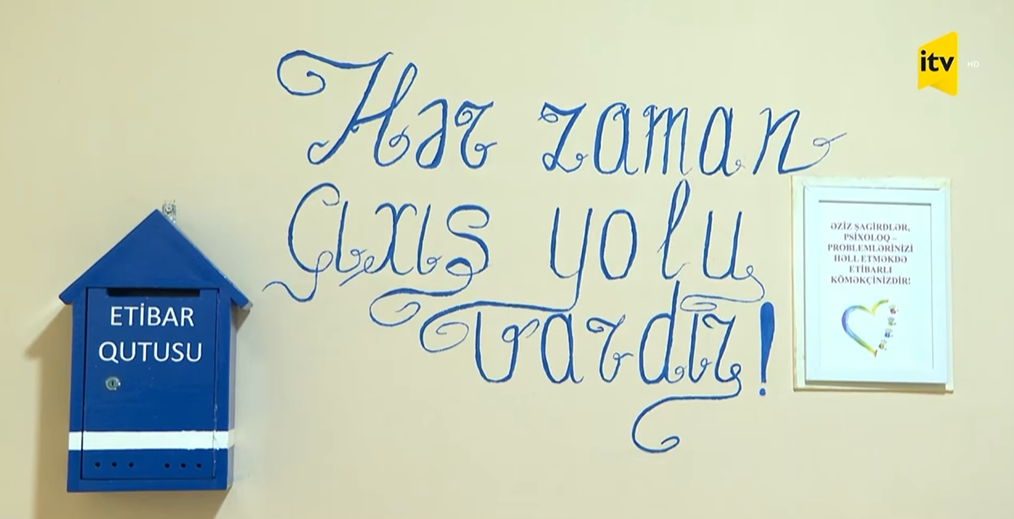 Hər zaman
Çıxış yolu
vardır!
ETİBAR
QUTUSU
ƏZİZ ŞAGİRDLƏR,
PSİXOLOQ –
PROBLEMLƏRİNİZİ
HƏLL ETMƏKDƏ
ETİBARLI
KÖMƏKÇİNİZDİR!
itv HD